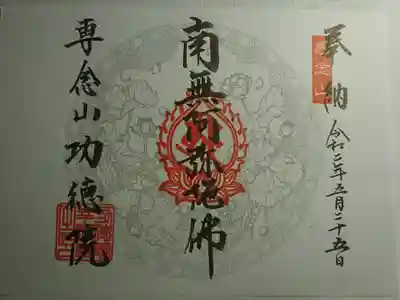 奉納
令和二年五月二十五日
南無阿弥陀佛
専念山功徳院